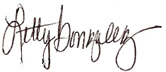 Letty Gonzalez